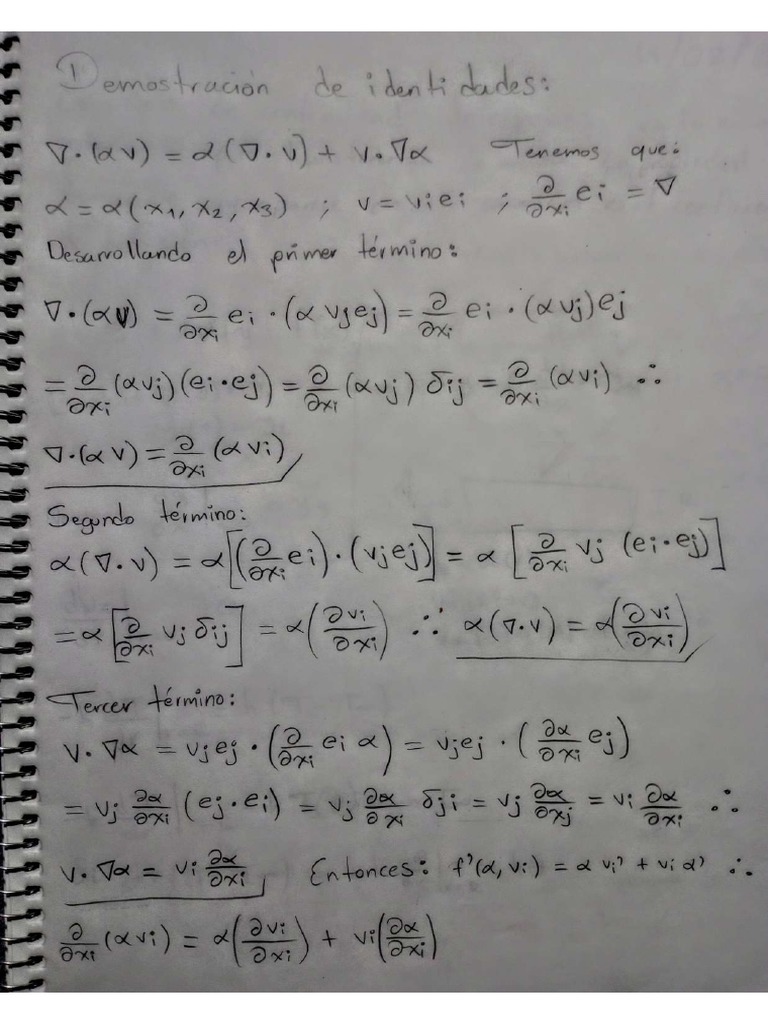 Demostración de identidades:
∇·(αv) = α(∇·v) + v·∇α Tenemos que:
α = α(x₁, x₂, x₃) ; v = vᵢeᵢ ; ∂/∂xᵢ eᵢ = ∇
Desarrollando el primer término:
∇·(αv) = ∂/∂xᵢ eᵢ · (α vⱼeⱼ) = ∂/∂xᵢ eᵢ · (αvⱼ)eⱼ
= ∂/∂xᵢ (αvⱼ)(eᵢ·eⱼ) = ∂/∂xᵢ (αvⱼ) δᵢⱼ = ∂/∂xᵢ (αvᵢ) ∴
∇·(αv) = ∂/∂xᵢ (αvᵢ)
Segundo término:
α(∇·v) = α[(∂/∂xᵢ eᵢ)·(vⱼeⱼ)] = α [∂/∂xᵢ vⱼ (eᵢ·eⱼ)]
= α[∂/∂xᵢ vⱼ δᵢⱼ] = α(∂vᵢ/∂xᵢ) ∴ α(∇·v) = α(∂vᵢ/∂xᵢ)
Tercer término:
v·∇α = vⱼeⱼ · (∂/∂xᵢ eᵢ α) = vⱼeⱼ · (∂α/∂xᵢ eⱼ)
= vⱼ ∂α/∂xᵢ (eⱼ·eᵢ) = vⱼ ∂α/∂xᵢ δⱼᵢ = vⱼ ∂α/∂xⱼ = vᵢ ∂α/∂xᵢ ∴
v·∇α = vᵢ ∂α/∂xᵢ Entonces: f'(α, vᵢ) = α vᵢ' + vᵢ α' ∴
∂/∂xᵢ (αvᵢ) = α(∂vᵢ/∂xᵢ) + vᵢ(∂α/∂xᵢ)